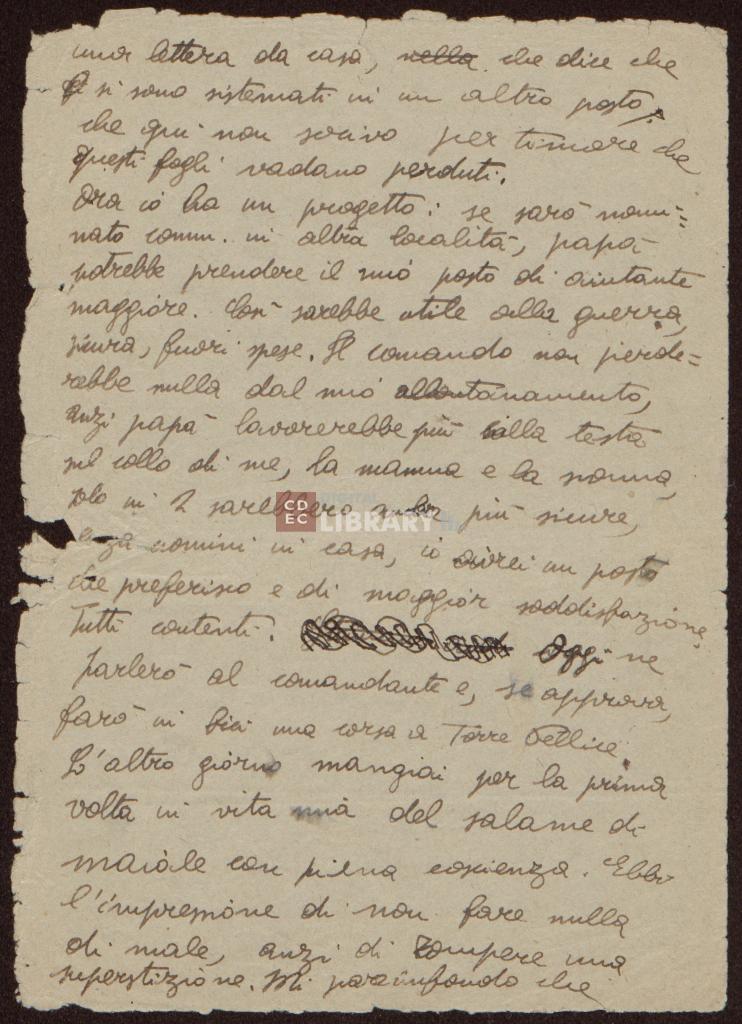 una lettera da casa, nella che dice che
si sono sistemati in un altro posto,
che qui non scrivo per timore che
questi fogli vadano perduti.
Ora io ho un progetto: se sarò nomi=
nato comm. in altra località, papà
potrebbe prendere il mio posto di aiutante
maggiore. Così sarebbe utile alla guerra,
sicura, fuori spese. Il comando non perde=
rebbe nulla dal mio allontanamento,
anzi papà lavorerebbe più colla testa
sul collo di me, la mamma e la nonna,
solo in 2 sarebbero più sicure,
senza uomini in casa, io avrei un posto
che preferisco e di maggior soddisfazione.
Tutti contenti. Oggi ne
parlerò al comandante e, se approva,
farò in bici una corsa a Torre Pellice
L'altro giorno mangiai per la prima
volta in vita mia del salame di
maiale con piena coscienza. Ebbi
l'impressione di non fare nulla
di male, anzi di rompere una
superstizione. Mi par infondo che
CDEC
DIGITAL
LIBRARY